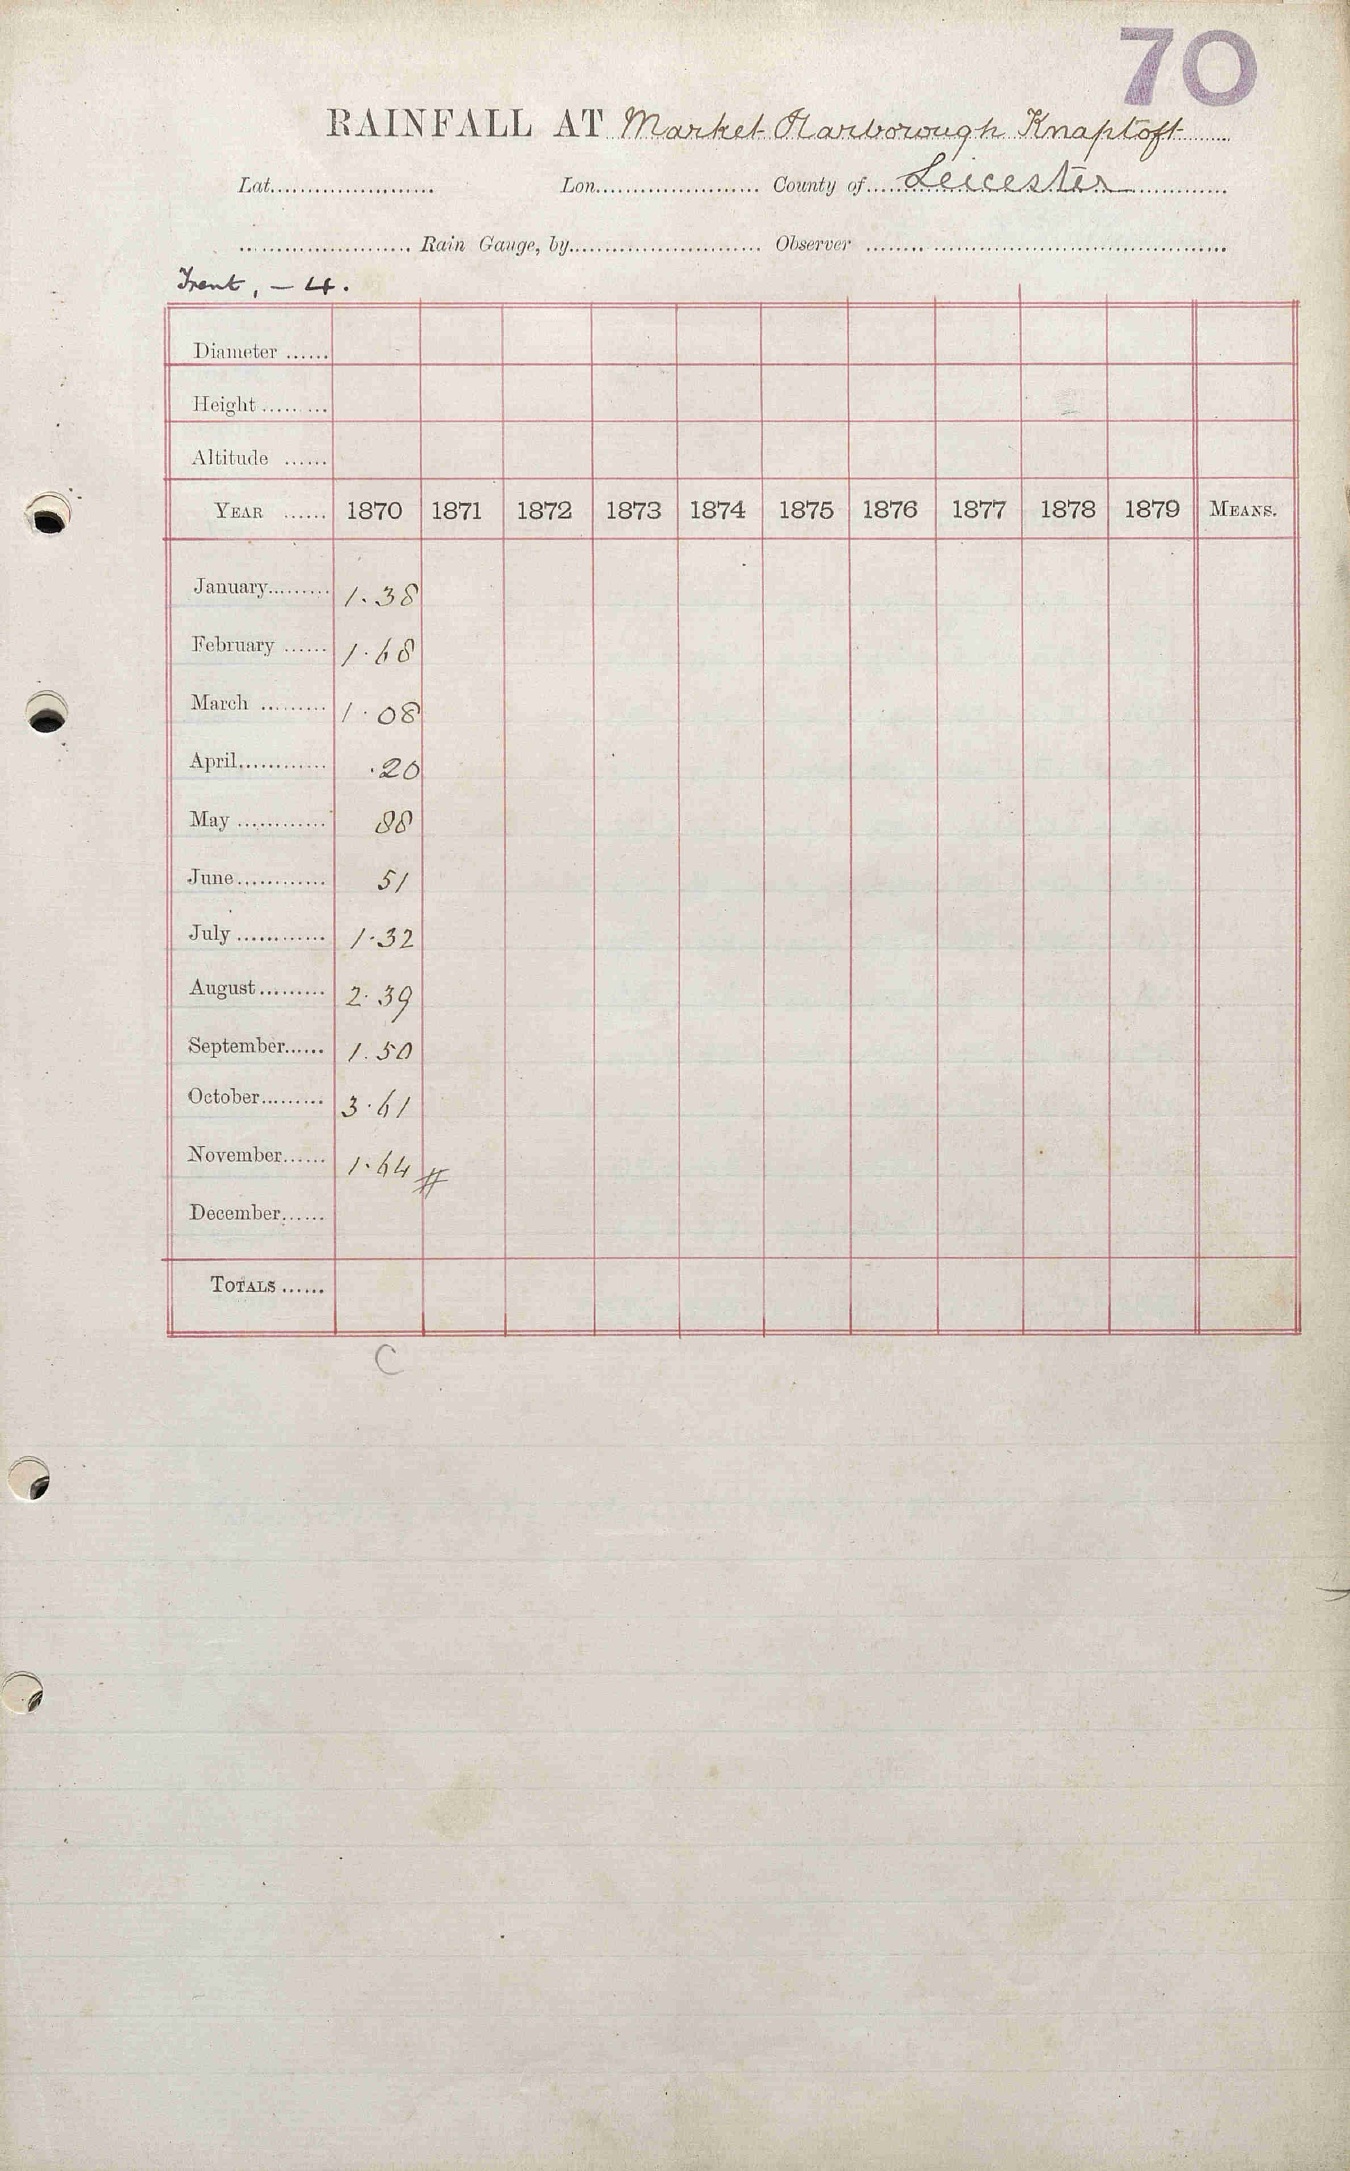 70
RAINFALL AT Market Harborough Knaptoft
Lat...................... Lon...................... County of..... Leicester
...................... Rain Gauge, by......................... Observer ........ .......................................
Trent, - 4.
Diameter ......
Height .........
Altitude ......
YEAR ...... 1870 1871 1872 1873 1874 1875 1876 1877 1878 1879 MEANS.
January......... 1.38
February ...... 1.68
March ......... 1.08
April............ .20
May ............ 88
June............ 51
July ............ 1.32
August......... 2.39
September...... 1.50
October......... 3.61
November...... 1.64 #
December......
TOTALS ......
C